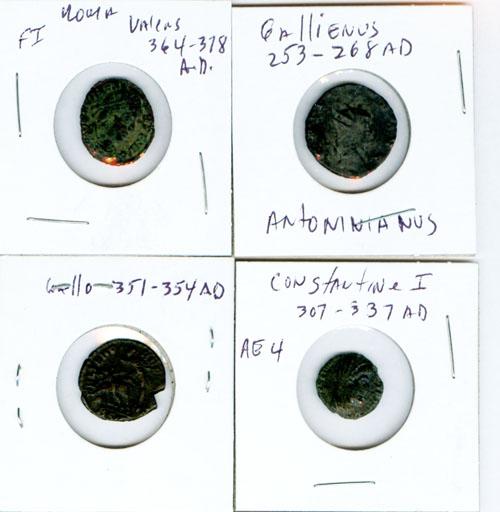 FI Roma Valens
364-378
A.D.
Gallienus
253-268 AD
Antoninianus
Gallo 351-354 AD
Constantine I
307-337 AD
AE 4